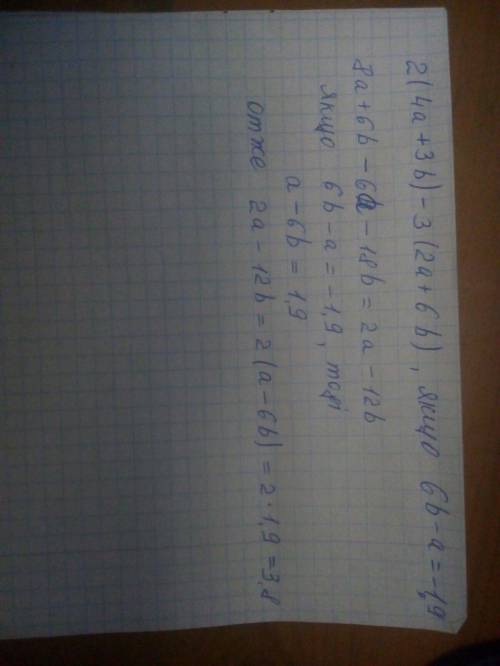 2(4a+3b)-3(2a+6b), якщо 6b-a=-1,9
8a+6b-6a-18b=2a-12b
якщо 6b-a=-1,9, тоді
a-6b=1,9
отже 2a-12b=2(a-6b)=2·1,9=3,8